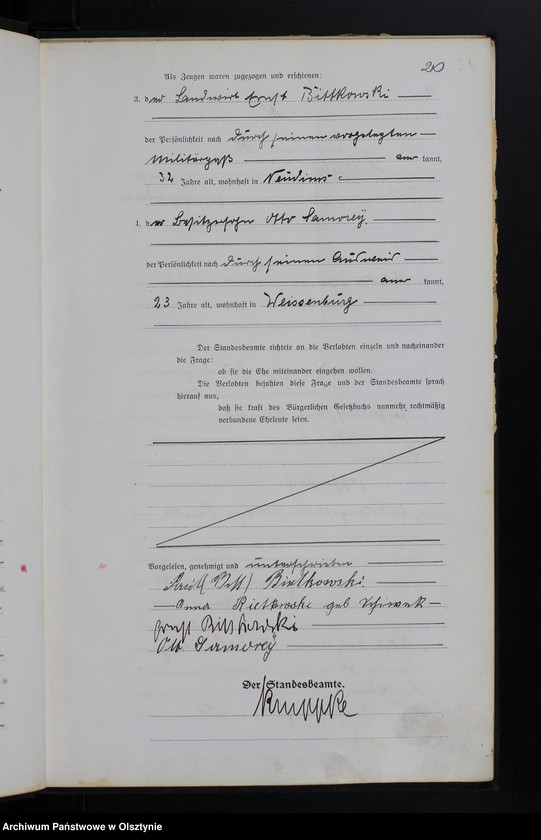 20
Als Zeugen waren zugezogen und erschienen:
3. der Landwirt Ernst Bittkowski
der Persönlichkeit nach durch seinen vorgelegten
Militärpaß aner kannt,
32 Jahre alt, wohnhaft in
4. der Besitzersohn Otto Samorey.
der Persönlichkeit nach durch seinen Ausweis
aner kannt,
23 Jahre alt, wohnhaft in Weissenburg
Der Standesbeamte richtete an die Verlobten einzeln und nacheinander
die Frage:
ob sie die Ehe miteinander eingehen wollen.
Die Verlobten bejahten diese Frage und der Standesbeamte sprach
hierauf aus,
daß sie kraft des Bürgerlichen Gesetzbuchs nunmehr rechtmäßig
verbundene Eheleute seien.
Vorgelesen, genehmigt und unterschrieben
Bietkowski
Anna geb
Ernst
Otto Samorey
Der Standesbeamte.
Kruppke
Archiwum Państwowe w Olsztynie